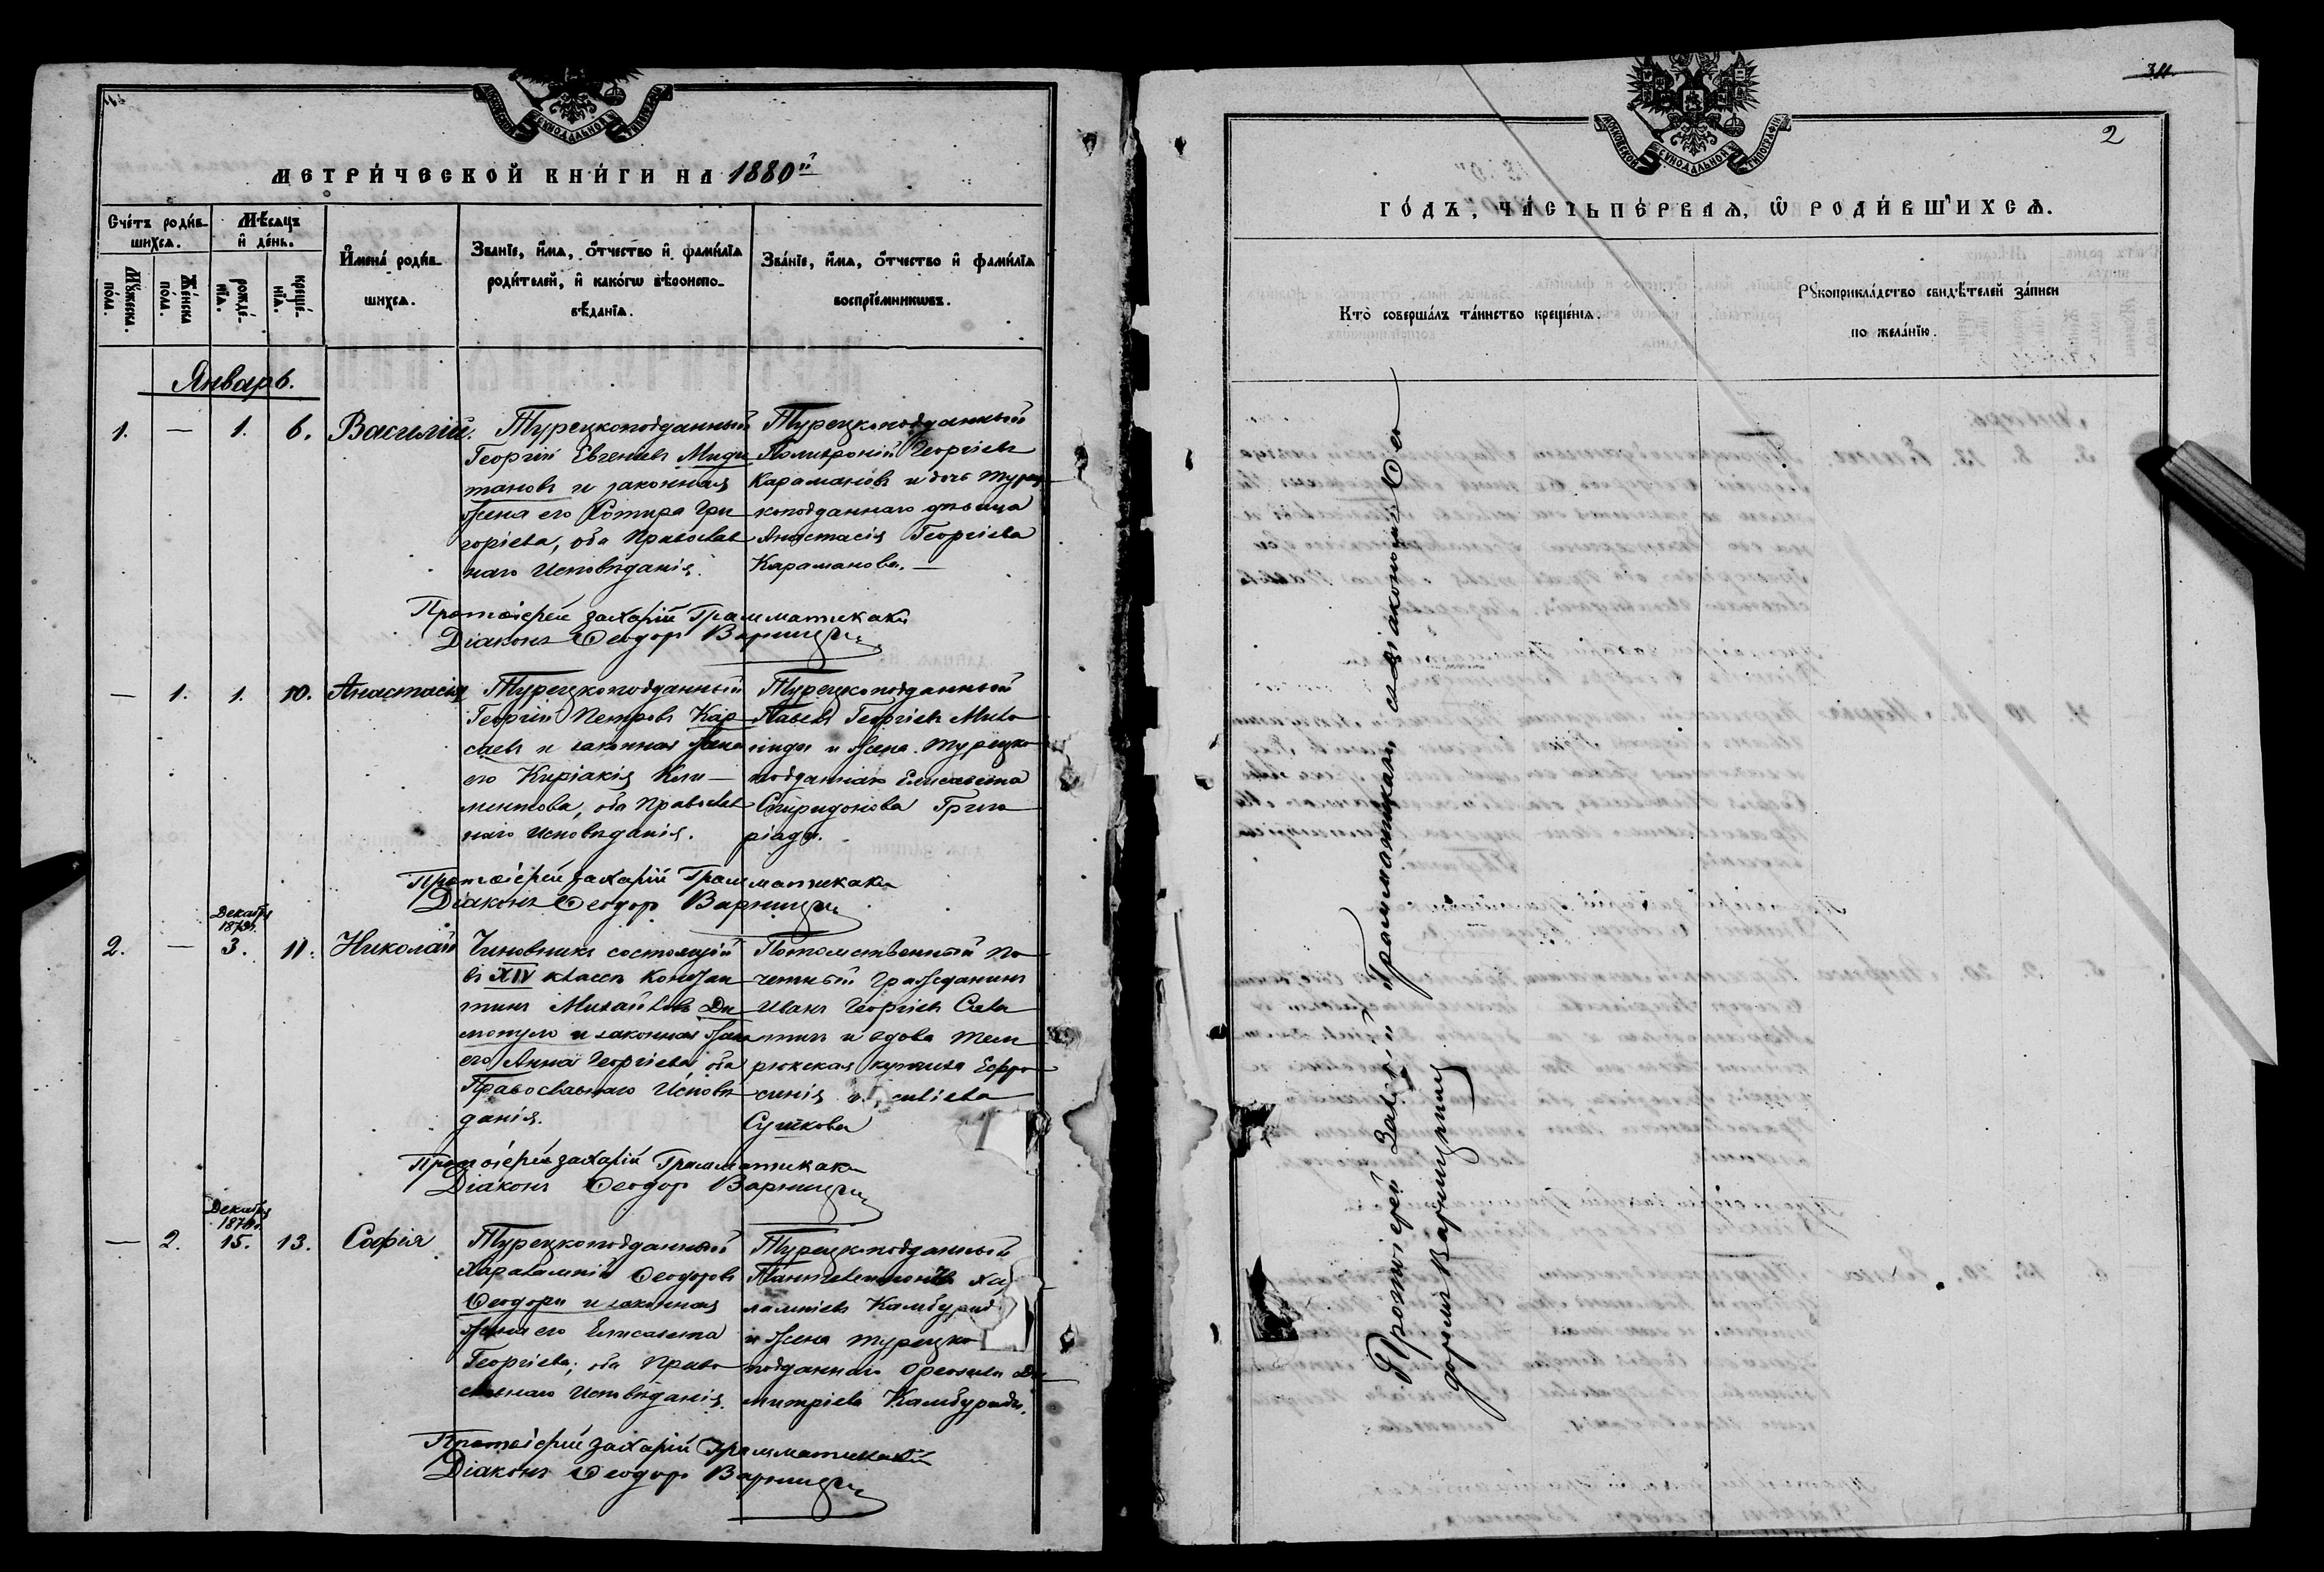 МОСКОВСКОЙ СѴНОДАЛЬНОЙ ТИПОГРАФІИ
МЕТРИ́ЧЕСКОЙ КНИ́ГИ НА 1880й
Сче́тъ роди́в-
шихсѧ.
Мѣ́сѧцъ
и҆ де́нь.
Мꙋ́жеска
по́ла.
Же́нска
по́ла.
рожде́-
нїѧ.
креще́-
нїѧ.
И҆мена̀ роди́в-
шихсѧ.
Зва́нїе, и҆́мѧ, ѻ҆́тчество и҆ фами́лїѧ
роди́телей, и҆ како́гѡ вѣроиспо-
вѣ́данїѧ.
Зва́нїе, и҆́мѧ, ѻ҆́тчество и҆ фами́лїѧ
воспрїе́мникѡвъ.
Январь.
1. — 1. 6. Василій.
Турецкоподданный
Георгій Евгеніевъ Миди
тановъ и законная
жена его Сотира Гри
горіева, оба Православ
наго Исповѣданія.
Турецкоподданный
Поликроній Георгіевъ
Карамановъ и дочь турец
коподданнаго дѣвица
Анастасія Георгіева
Караманова. —
Протоіерей Захарій Грамматикаки
Діаконъ Ѳеодор Варницкій
— 1. 1. 10. Анастасія
Турецкоподданный
Георгій Петровъ Кар
саев и законная жена
его Киріакія Кли—
ментова, оба Православ
наго Исповѣданія.
Турецкоподданный
Павелъ Георгіевъ
и жена турецко
подданнаго Елисавета
Спиридонова Григо
ріади.
Протоіерей Захарій Грамматикаки
Діаконъ Ѳеодор Варницкій
Декабря
1879г.
2. — 3. 11. Николай
Чиновникъ состоящій
въ XIV классѣ Констан
тинъ Михайловъ Ди
мопуло и законная жена
его Анна Георгіева, оба
Православнаго Исповѣ
данія.
Потомственный по
четный гражданинъ
Иванъ Георгіевъ Сева
и вдова Тем
рюкская купчиха Евфро
синія
Сушкова
Протоіерей Захарій Грамматикаки
Діаконъ Ѳеодор Варницкій
Декабря
1879г.
— 2. 15. 13. Софія
Турецкоподданный
Харалампій Ѳеодоровъ
Ѳеодори и законная
жена его Елисавета
Георгіева, оба Право
славнаго Исповѣданія.
Турецкоподданный
Пантелеимонъ Ха
лампіевъ Камбуриди
и жена турецко
подданнаго Ди
митріева Камбуриди.
Протоіерей Захарій Грамматикаки
Діаконъ Ѳеодор Варницкій
МОСКОВСКОЙ СѴНОДАЛЬНОЙ ТИПОГРАФІИ
2
ГО́ДЪ, ЧА́СТЬ ПЕ́РВАѦ, Ѽ РОДИ́ВШИХСѦ.
Кто̀ соверша́лъ та́инство креще́нїѧ.
Рꙋкоприкла́дство свидѣ́телей за́писи
по жела́нїю.
Протоіерей Захарій Грамматикаки съ діакономъ Ѳео
доромъ Варницкимъ